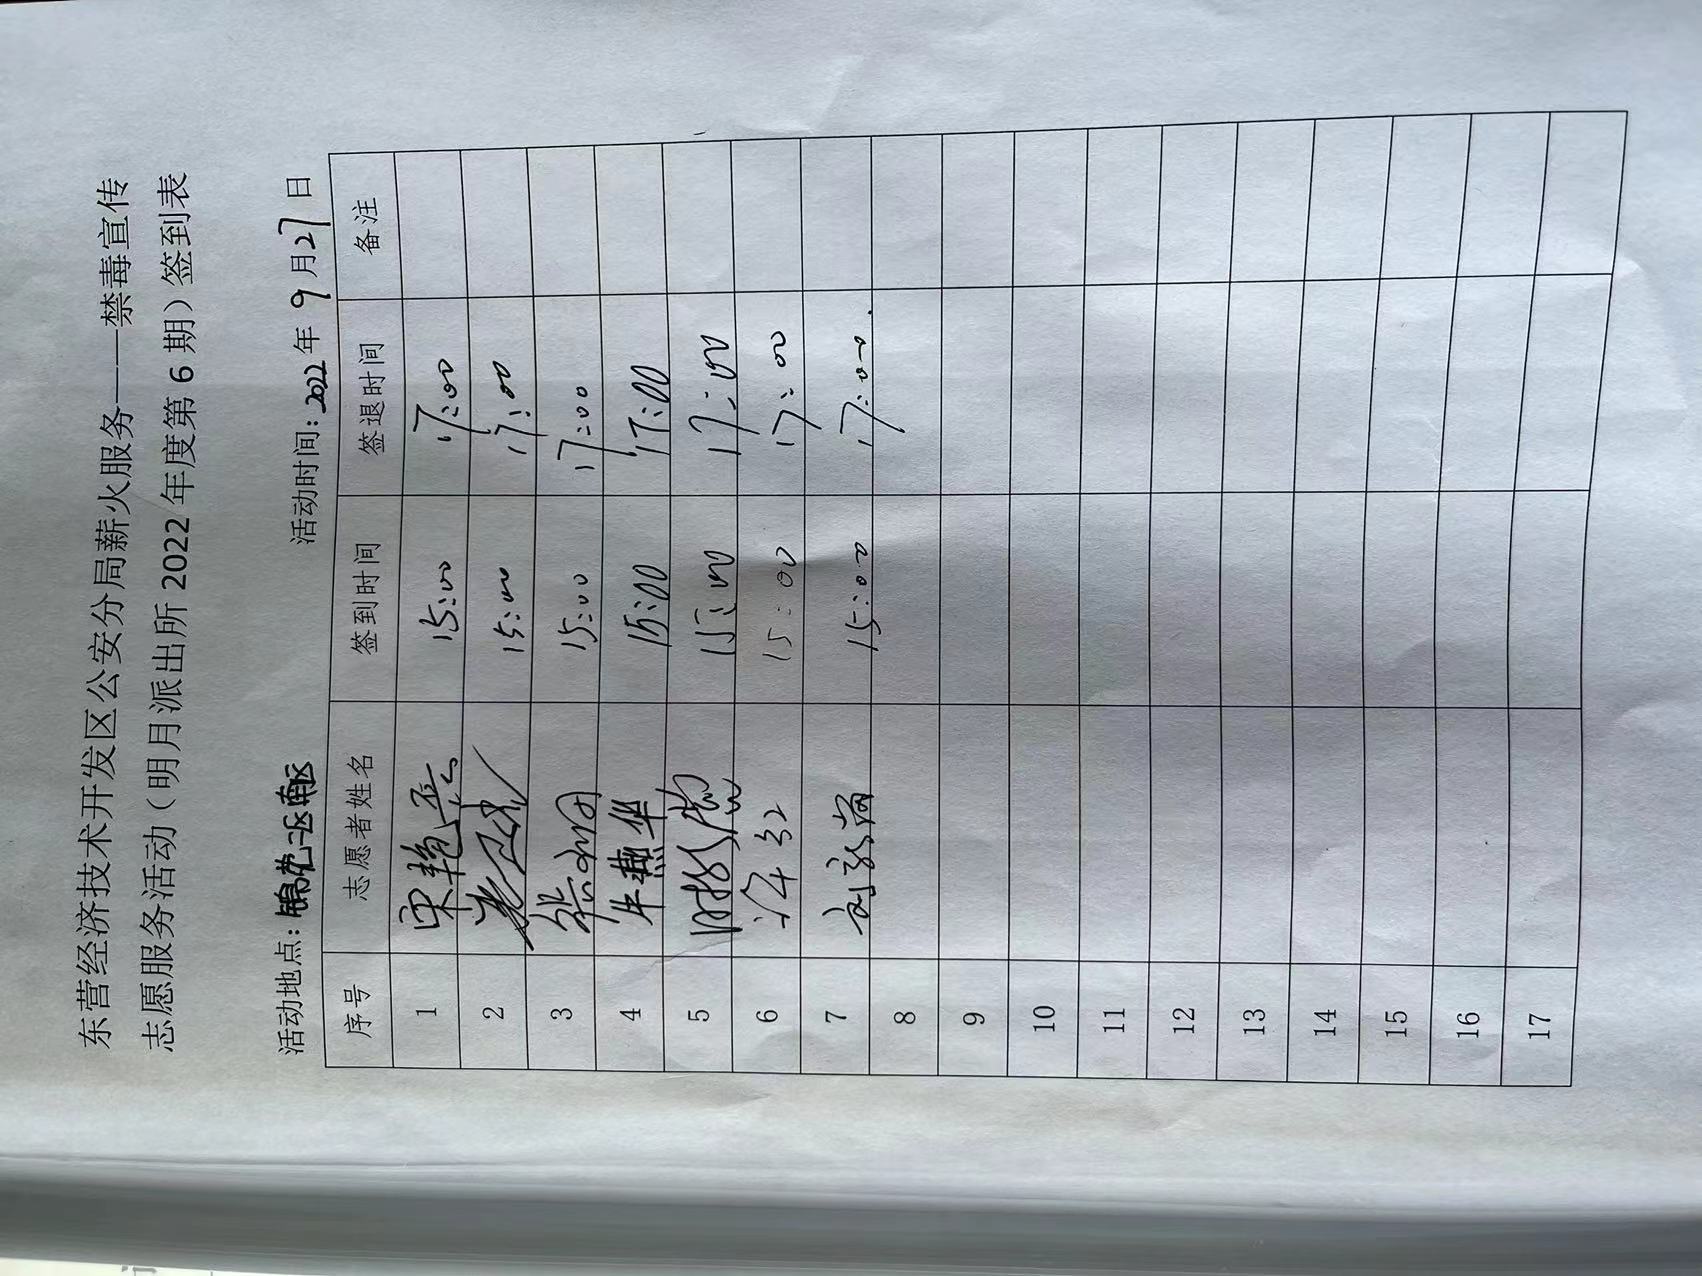 东营经济技术开发区公安分局薪火服务——禁毒宣传
志愿服务活动（明月派出所 2022 年度第 6 期）签到表
活动地点：锦苑 活动时间：2022年 9 月27日
序号 志愿者姓名 签到时间 签退时间 备注
1 宋艳芸 15:00 17:00
2 15:00 17:00
3 15:00 17:00
4 牛燕华 15:00 17:00
5 15:00 17:00
6 15:00 17:00
7 15:00 17:00.
8
9
10
11
12
13
14
15
16
17